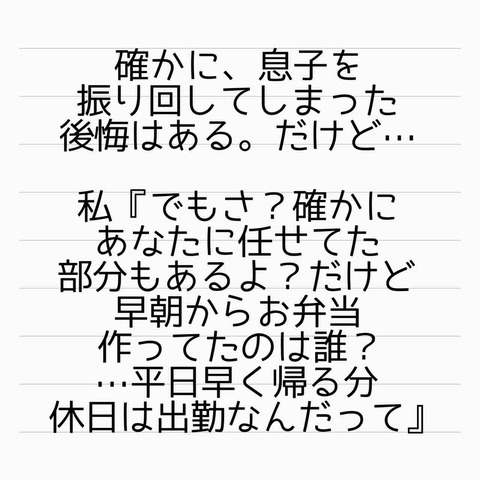 確かに、息子を
振り回してしまった
後悔はある。だけど…
私『でもさ？確かに
あなたに任せてた
部分もあるよ？だけど
早朝からお弁当
作ってたのは誰？
…平日早く帰る分
休日は出勤なんだって』